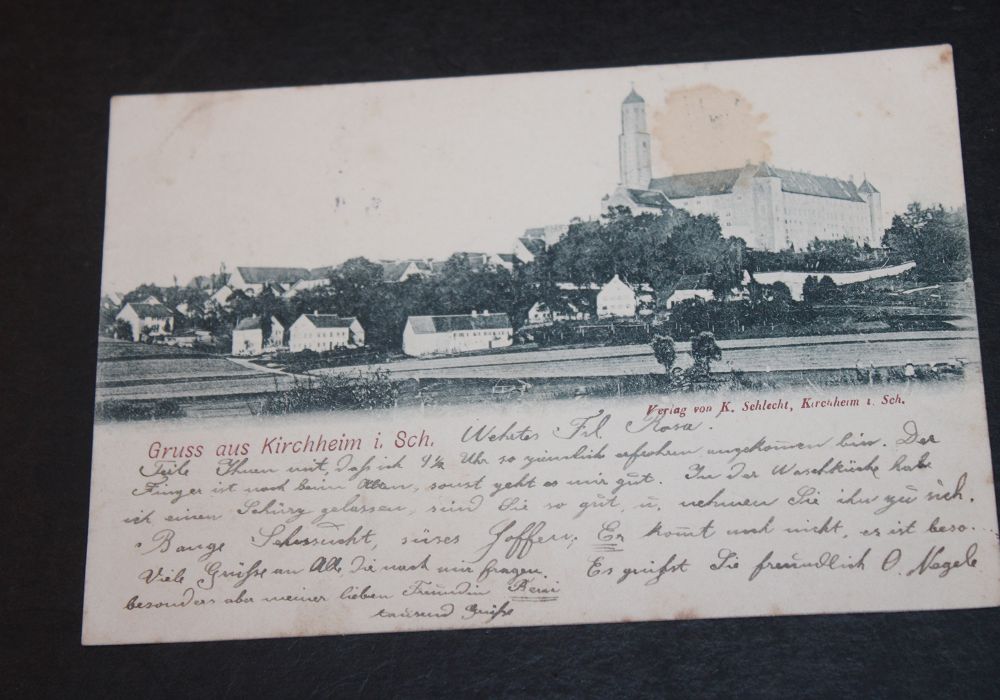 Verlag von K. Schlecht, Kirchheim i. Sch.
Gruss aus Kirchheim i. Sch.
Wehrtes Frl. Rosa.
Teile Ihnen mit, daß ich 4½ Uhr so ziemlich erfrohren angekommen bin. Der
Finger ist noch beim Alten, sonst geht es mir gut. In der Waschküche habe
ich einen Schurz gelassen, sind Sie so gut, u. nehmen Sie ihn zu sich.
Bange Sehnsucht, süses Hoffen; Er kommt noch nicht, er ist
Viele Grüße an Alle, die nach mir fragen. Es grüßt Sie freundlich O. Nagele
besonders aber meiner lieben Freundin
tausend Grüße